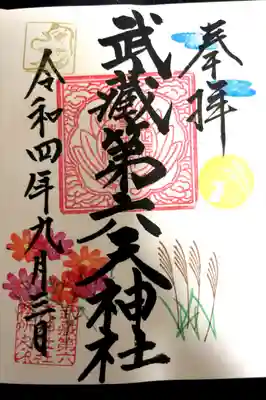 奉拝
武蔵第六天神社
令和四年九月三日